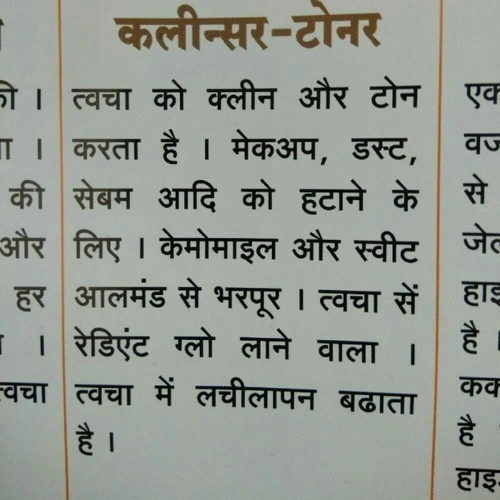 कलीन्सर-टोनर
त्वचा को क्लीन और टोन
करता है । मेकअप, डस्ट,
सेबम आदि को हटाने के
लिए । केमोमाइल और स्वीट
आलमंड से भरपूर । त्वचा सें
रेडिएंट ग्लो लाने वाला ।
त्वचा में लचीलापन बढाता
है ।
की ।
की
और
हर
।
एक
से
है ।
है